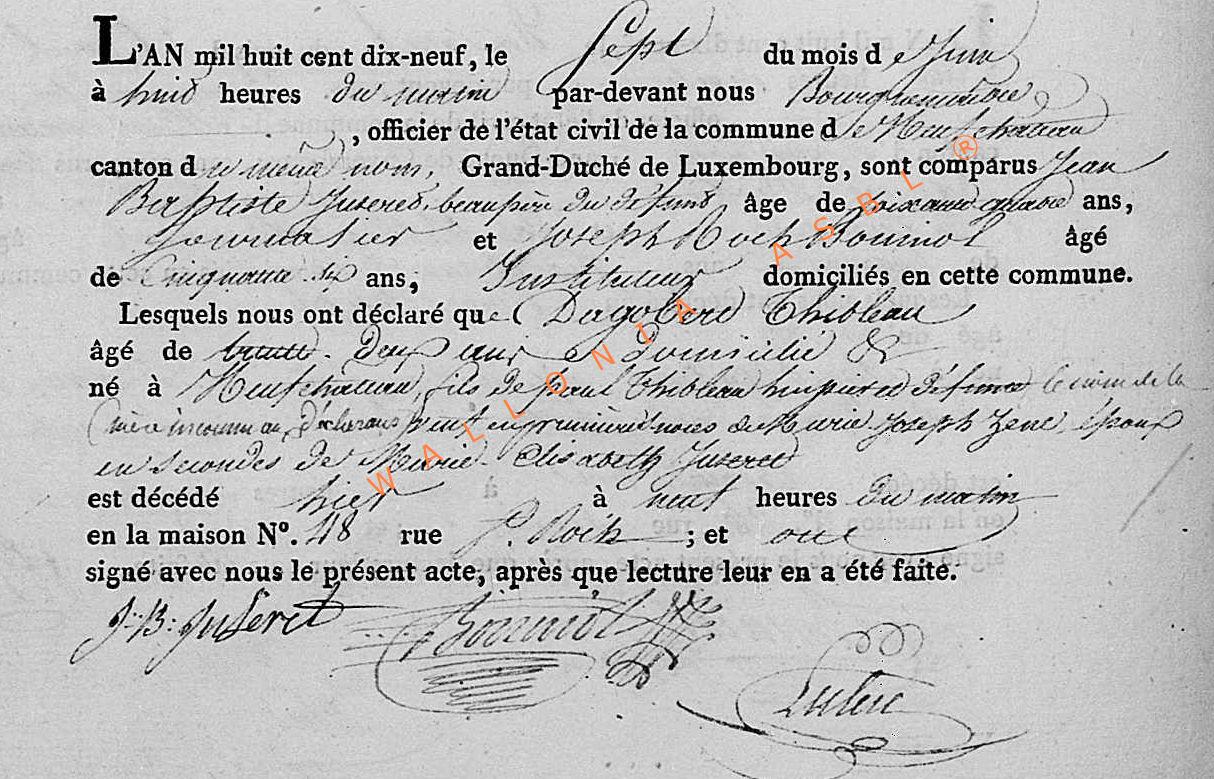 L'AN mil huit cent dix-neuf, le Sept du mois de Juin
à huit heures du matin par-devant nous Bourguemaitre
, officier de l'état civil de la commune de Neufchateau
canton du même nom, Grand-Duché de Luxembourg, sont comparus Jean
Baptiste Juseret, beaupère du défunt âge de soixante quatre ans,
journalier et Joseph Roch Bournol âgé
de Cinquante six ans; Instituteur domiciliés en cette commune.
Lesquels nous ont déclaré que Dagobert Thibleau
âgé de trente Deux ans et Domicilié &
né à Neufchateau, fils de paul Thibleau huissier et défunt le nom de la
mère inconnu au Déclarans veuf en premières noces de Marie Joseph Zene, Epoux
en secondes de Marie Elisabeth Juseret
est décédé hier à neuf heures du matin
en la maison N°. 48 rue St. Roch ; et ont
signé avec nous le présent acte, après que lecture leur en a été faite.
J: B: Juseret Bournol
WALLONIA ASBL ®